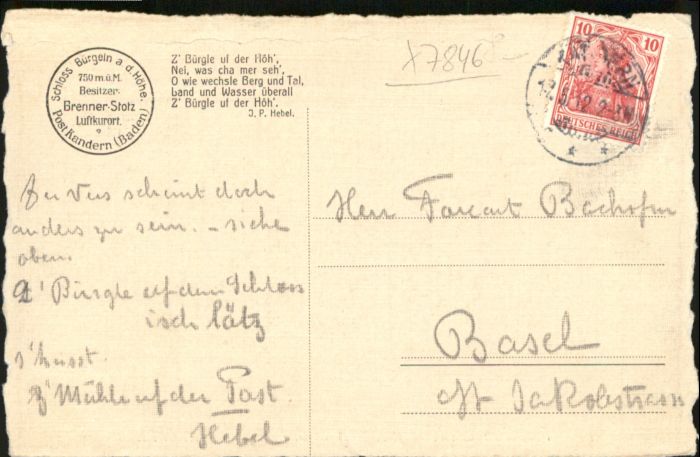 Schloss Bürgeln a. d. Höhe.
750 m.ü.M.
Besitzer:
Brenner-Stotz
Luftkurort.
Post Kandern (Baden)
Z' Bürgle uf der Höh',
Nei, was cha mer seh',
O wie wechsle Berg und Tal,
Land und Wasser überall
Z' Bürgle uf der Höh'.
J. P. Hebel.
X7846
10 10
DEUTSCHES REICH
Der Vers scheint doch
anders zu sein. – siehe
oben.
Z' Bürgle uf dem Schloss
isch lätz
s'husst.
Z' Mühle uf der Post
Hebel
Herr Bachofen
Basel
St Jakobstrasse